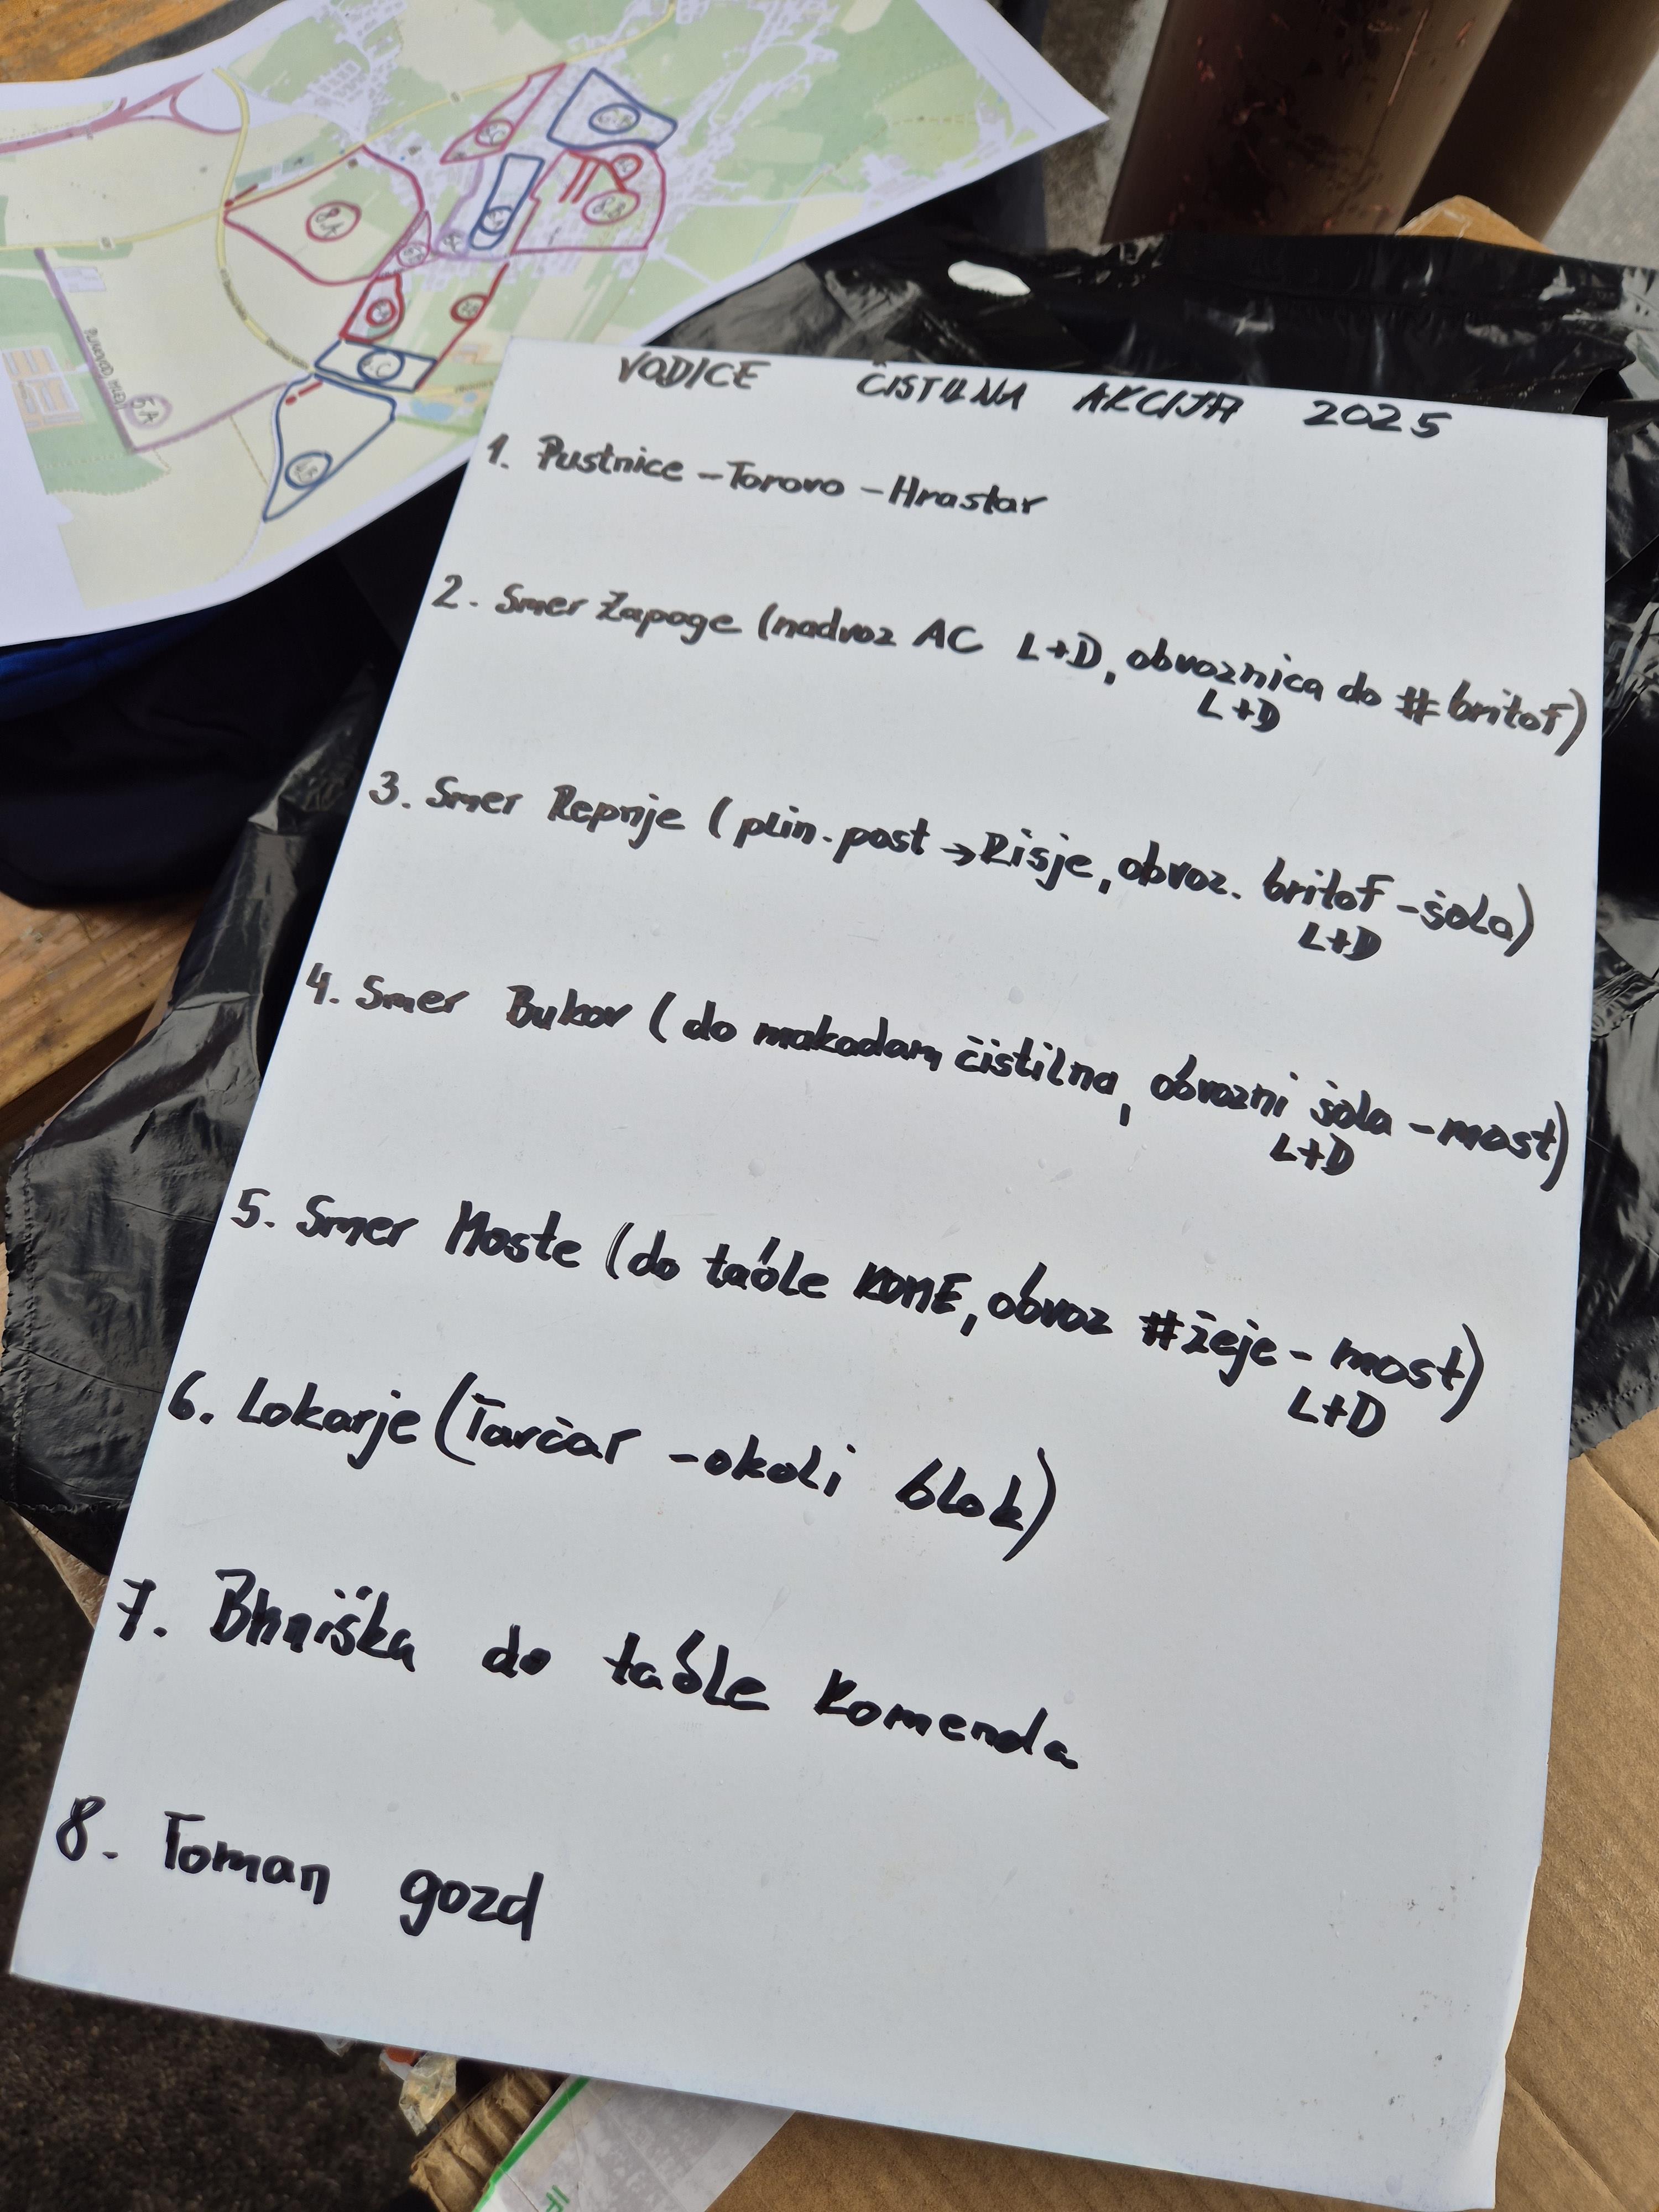 VODICE ČISTILNA AKCIJA 2025
1. Pustnice - Torovo - Hrastar
2. Smer Zapoge (nadvoz AC L+D, obvoznica do # britof)
L+D
3. Smer Repnje (plin. post → Risje, obvoz. britof - šola)
L+D
4. Smer Bukov (do makadam čistilna, obvozni šola - most)
L+D
5. Smer Moste (do table KOME, obvoz # žeje - most)
L+D
6. Lokarje (Tarčar - okoli blok)
7. do table Komenda
8. Toman gozd
8.A
8.B
5.A